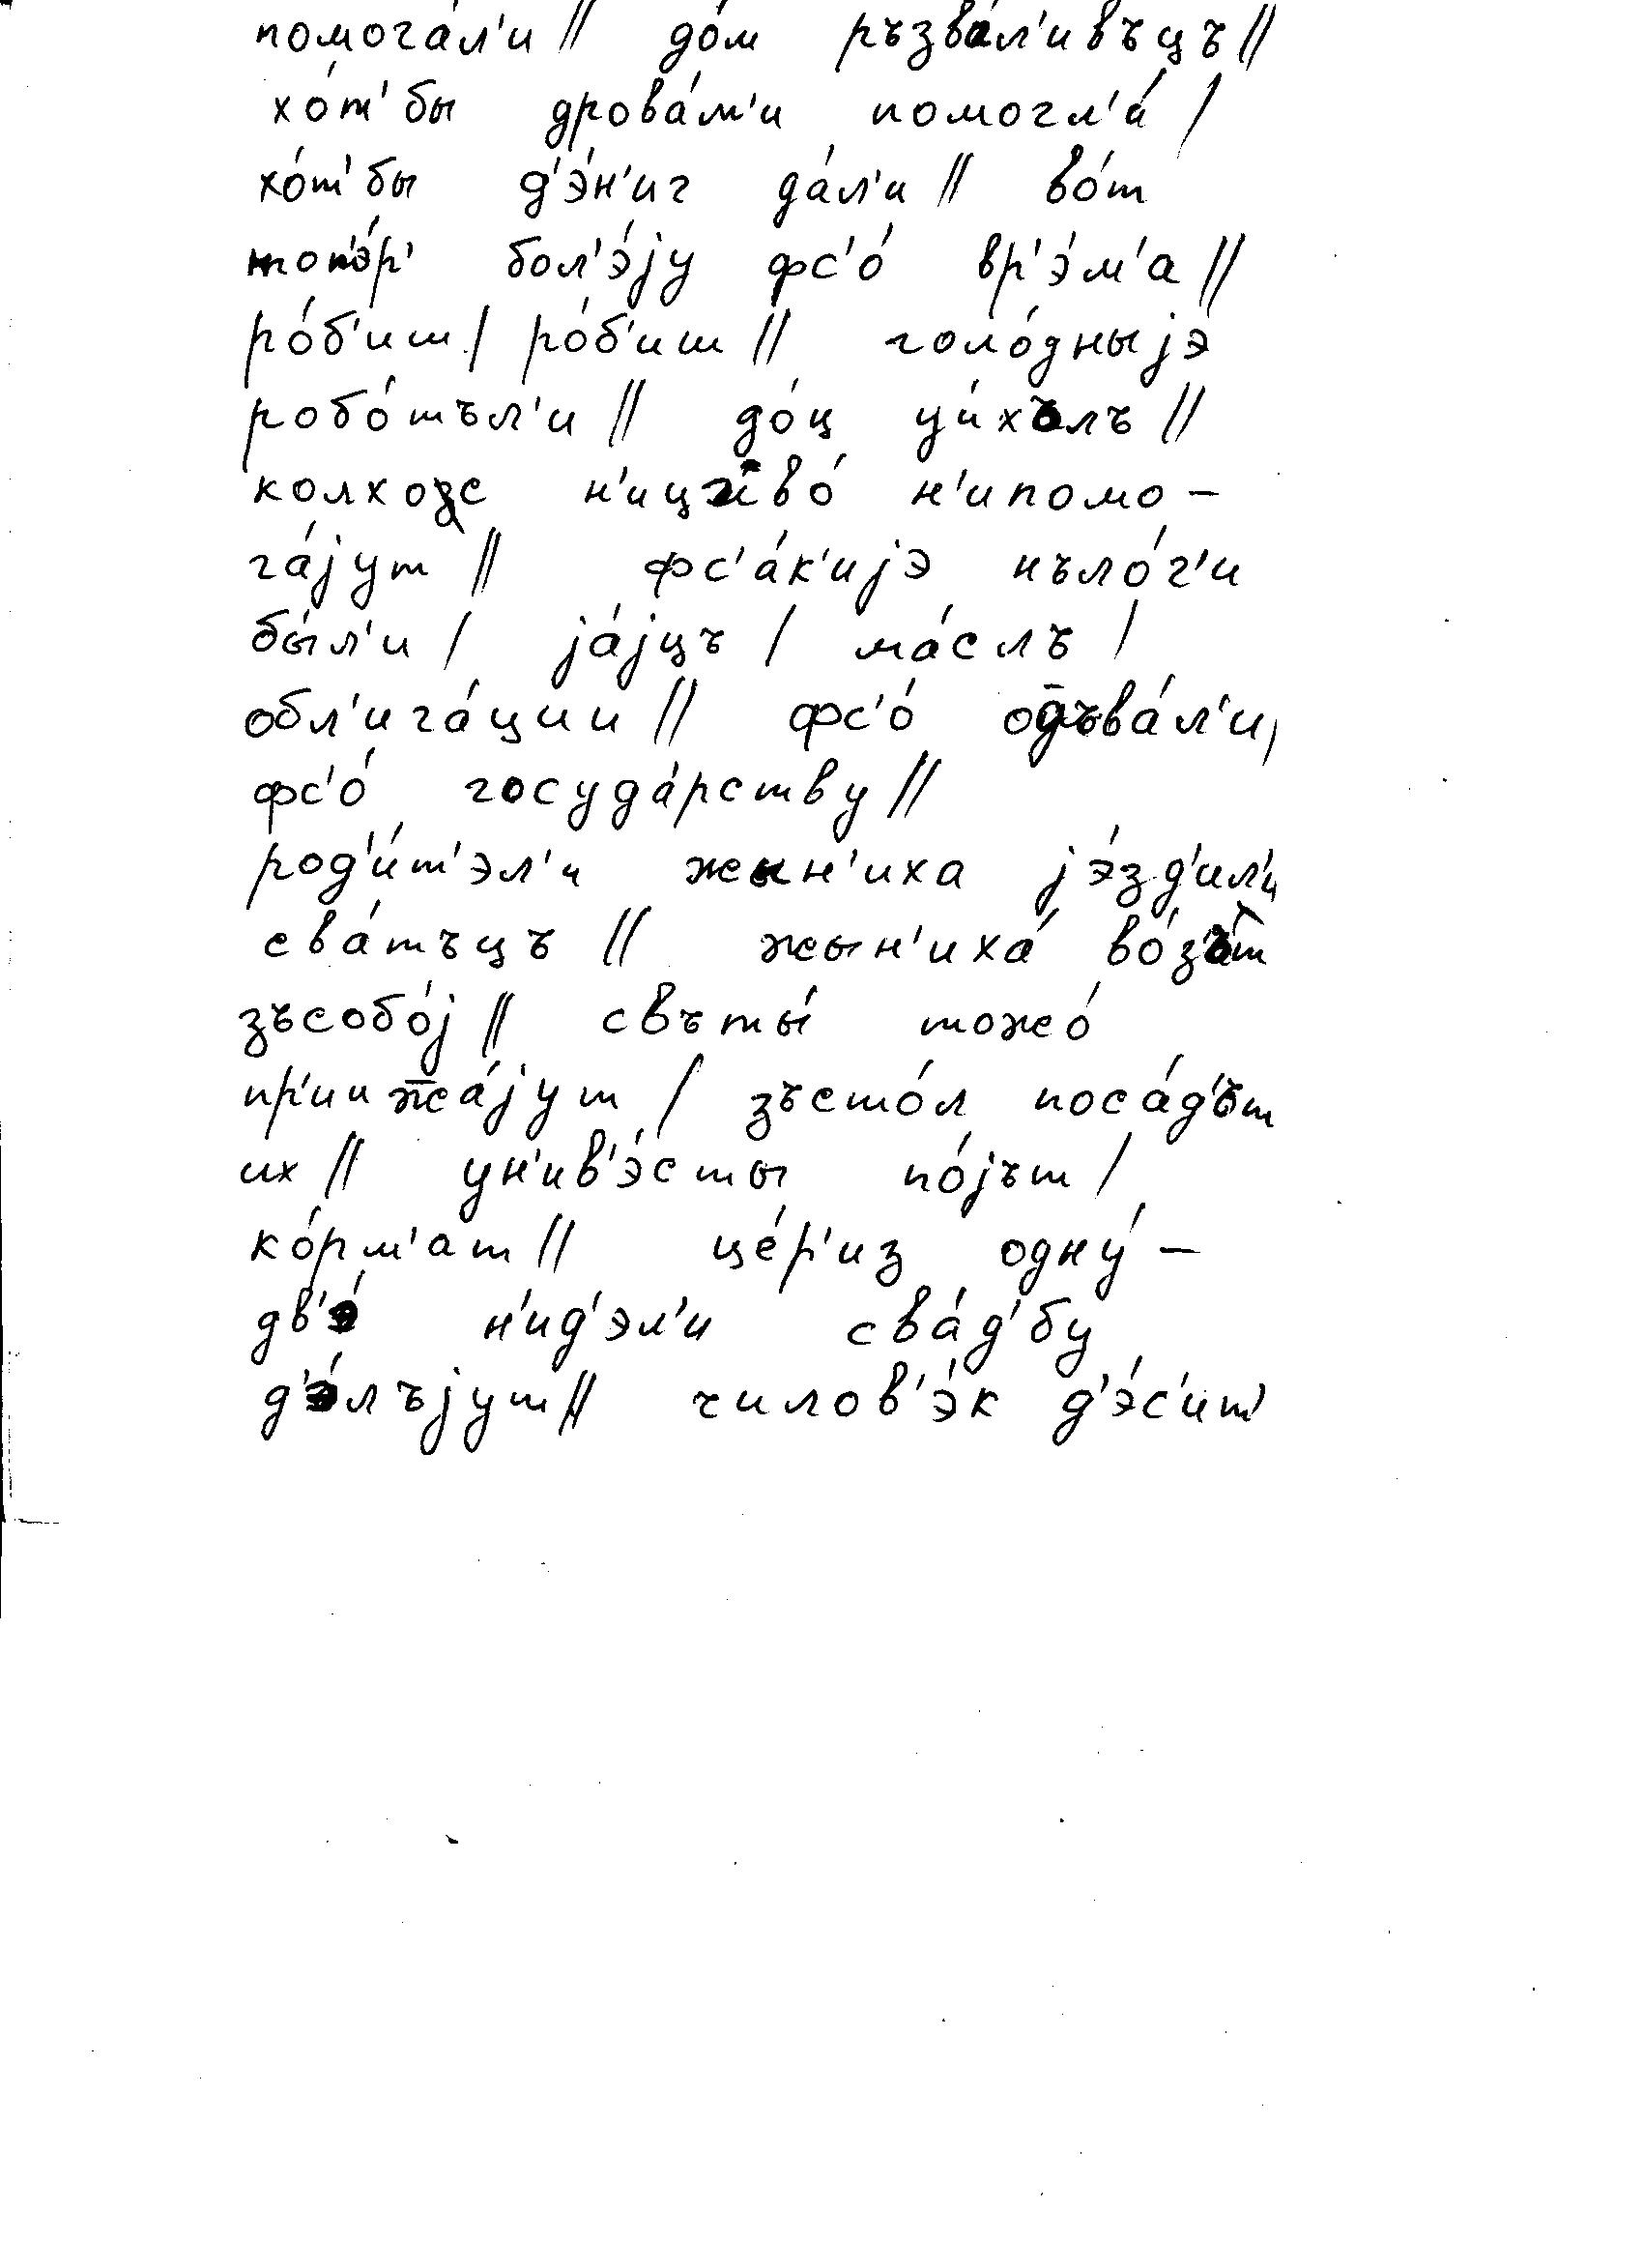 помога́л'и // до́м ръзва́л'ивъцъ //
хо́т' бы дрова́м'и помогл'и́ /
хо́т' бы д'э́н'иг да́л'и // во́т
топ'э́р' бол'э́jу фс'о́ вр'э́м'а //
ро́б'иш / ро́б'иш // голо́дныjэ
робо́тъл'и // до́ц уи́хълъ //
колхозс н'ицыво́ н'ипомо -
га́jут // фс'а́к'иjэ нъло́г'и
бы́л'и / jа́jцъ / ма́слъ /
обл'ига́ции // фс'о́ од̄ъва́л'и /
фс'о́ госуда́рству //
род'и́т'эл'и жын'иха jэ́зд'ил'и
сва́тъцъ // жын'иха́ во́з'ът
зъсобо́j // свъты́ тожо́
пр'ииж̄а́jут / зъсто́л поса́д'ът
их // ун'ив'э́сты по́jът /
ко́рм'ат // це́р'из одну́ -
дв'э́ н'ид'эл'и сва́д'бу
д'э́лъjут // чилов'э́к д'э́с'ит'